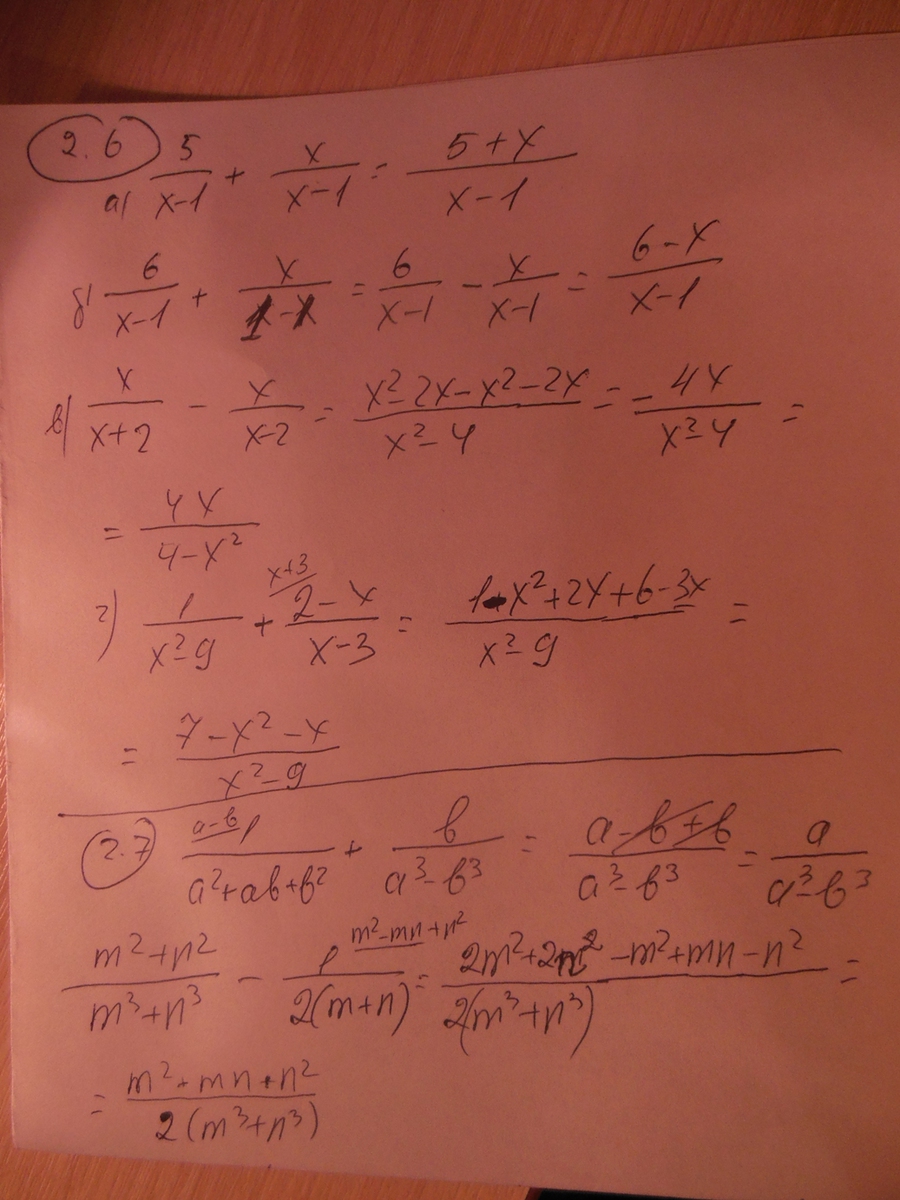 2.6 а) 5/(x-1) + x/(x-1) = (5+x)/(x-1)
б) 6/(x-1) + x/(1-x) = 6/(x-1) - x/(x-1) = (6-x)/(x-1)
в) x/(x+2) - x/(x-2) = (x²-2x-x²-2x)/(x²-4) = -4x/(x²-4) =
= 4x/(4-x²)
г) 1/(x²-9) + (2-x)/(x-3) (x+3) = (1-x²+2x+6-3x)/(x²-9) =
= (7-x²-x)/(x²-9)
2.7 (a-b) 1/(a²+ab+b²) + b/(a³-b³) = (a-b+b)/(a³-b³) = a/(a³-b³)
(m²+n²)/(m³+n³) - 1/(2(m+n)) (m²-mn+n²) = (2m²+2n²-m²+mn-n²)/(2(m³+n³)) =
= (m²+mn+n²)/(2(m³+n³))